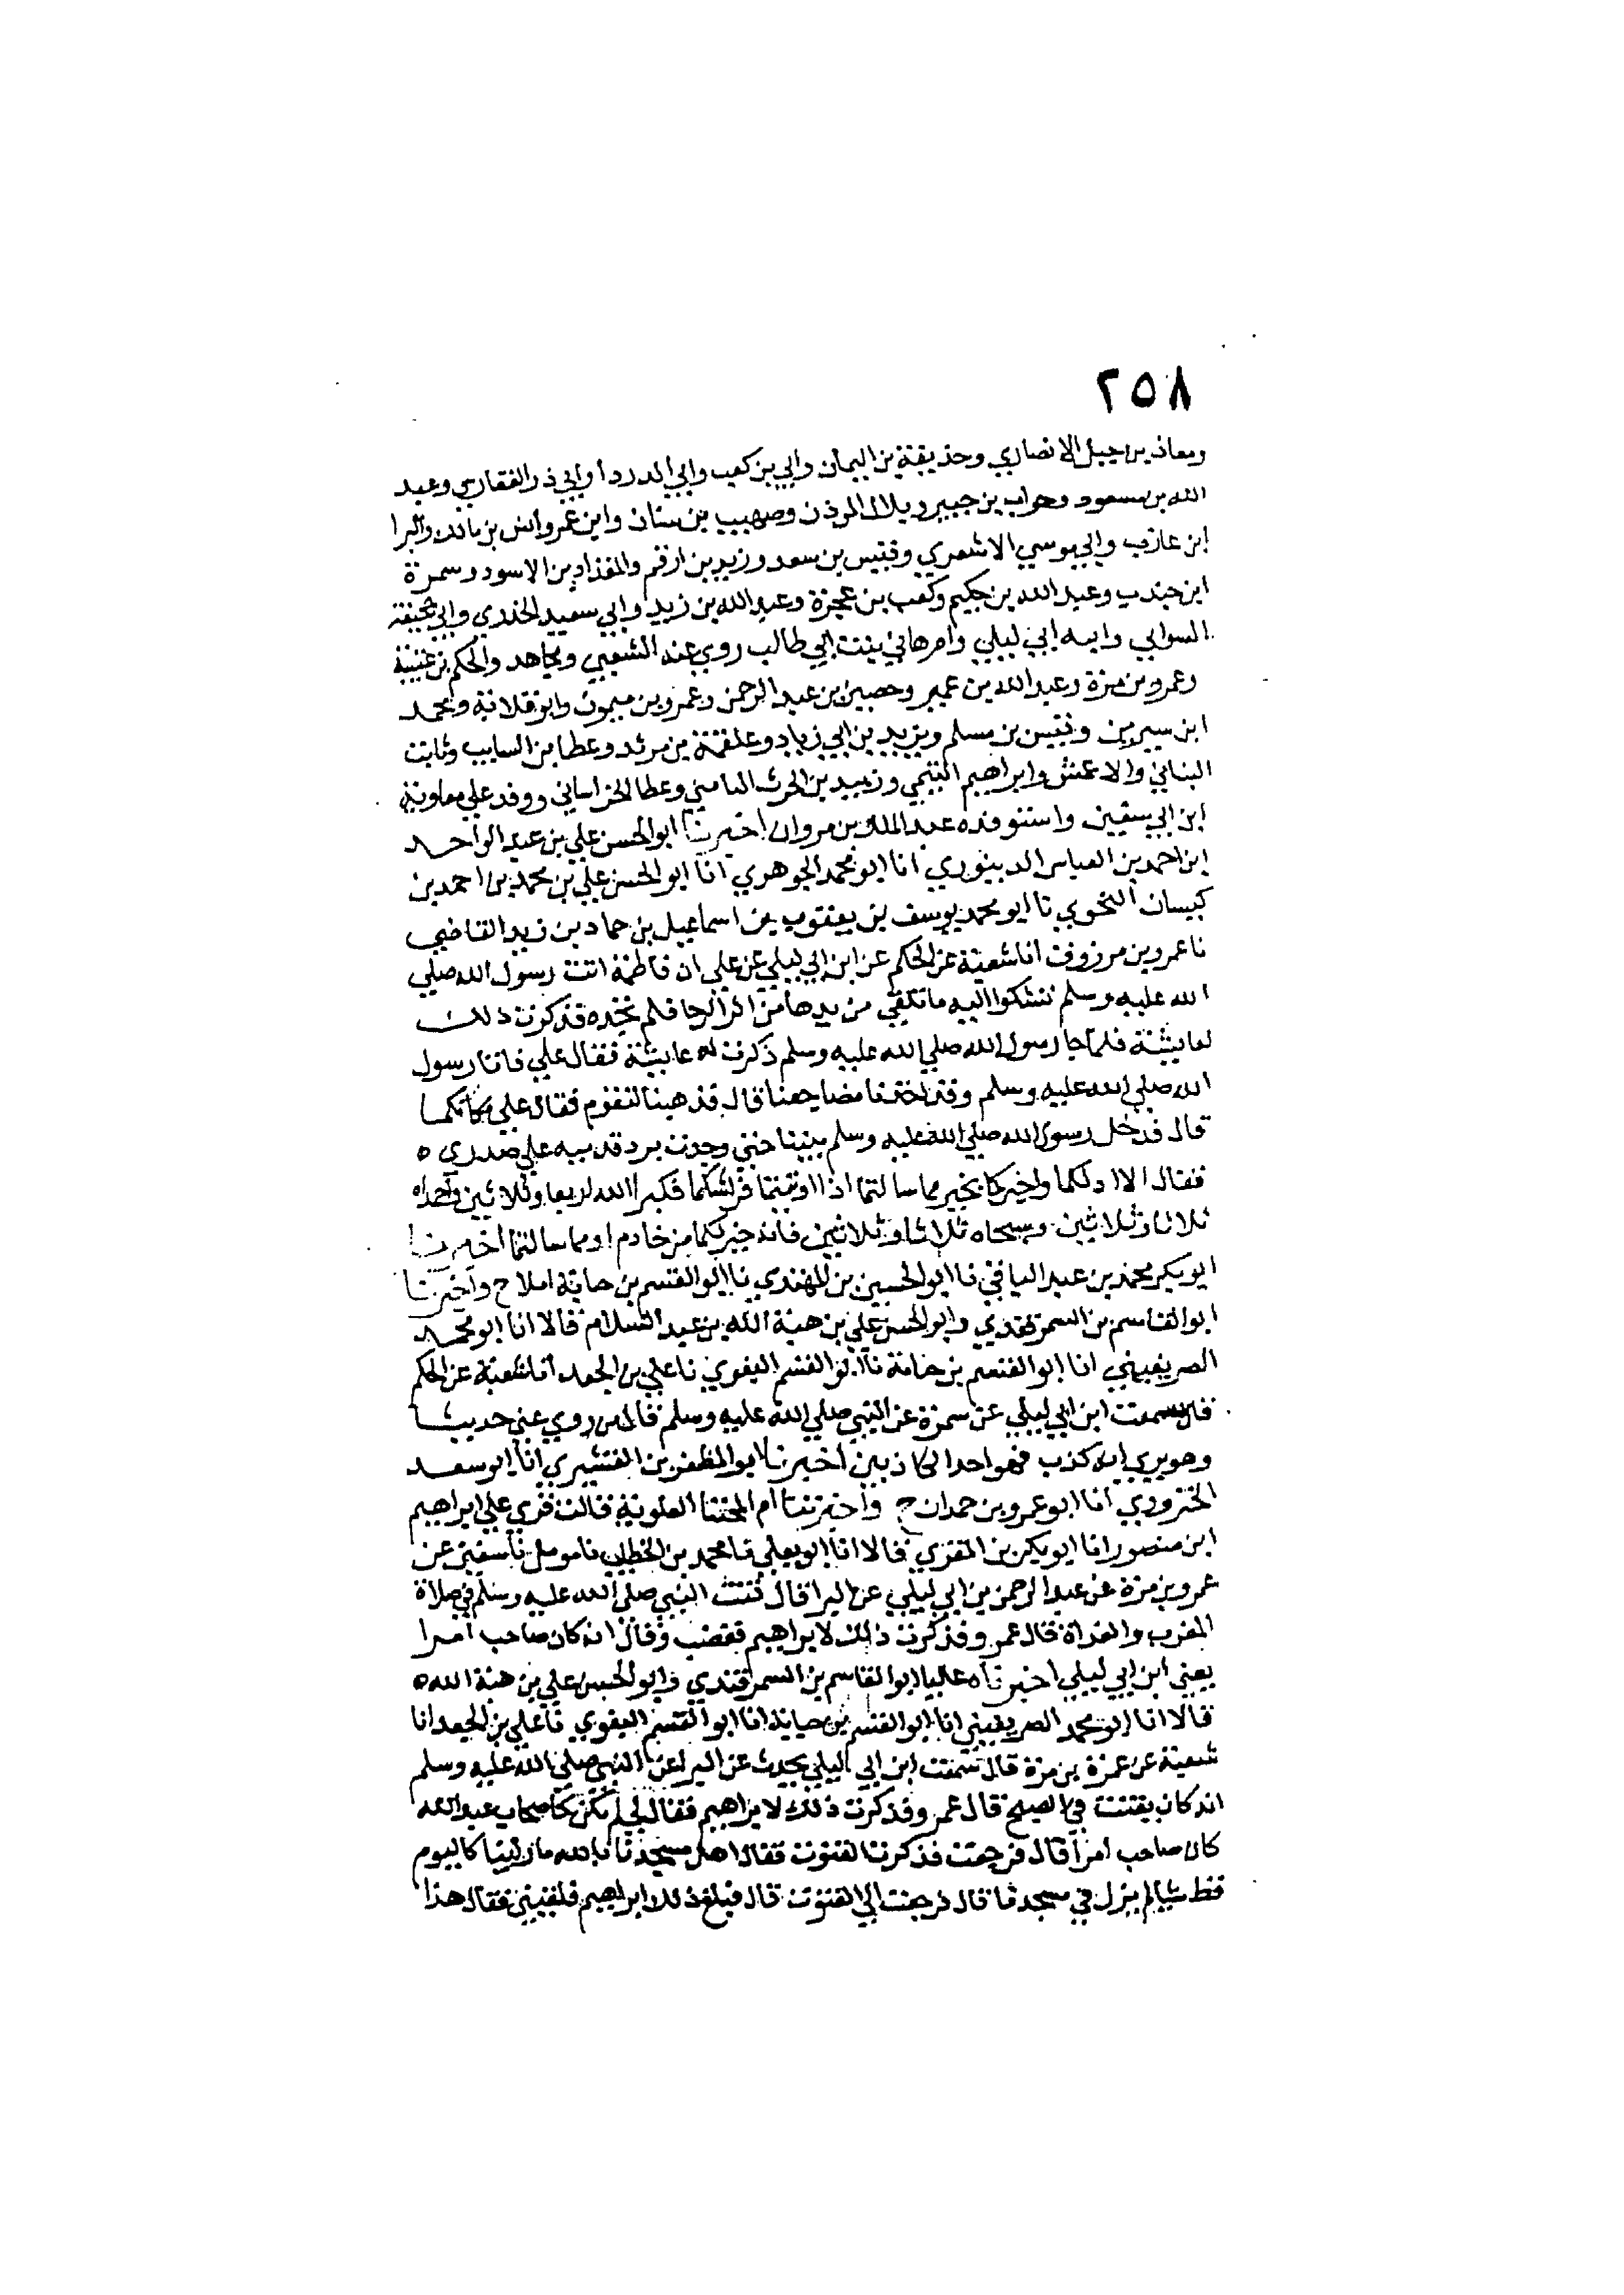 ٢٥٨
ومعاذ بن جبل الانصاري وحذيفة بن اليمان وابي بن كعب وابي الدردا وابي ذر الغفاري وعبد
الله بن مسعود وخوات بن جبير وبلال الموذن وصهيب بن سنان وابن عمر وانس بن مالك والبرا
ابن عازب وابي موسي الاشعري وقيس بن سعد وزيد بن ارقم والمقداد بن الاسود وسمرة
ابن جندب وعبد الله بن حكيم وكعب بن عجرة وعبد الله بن زيد وابي سعيد الخدري وابي جحيفة
السوايي وابيه ابي ليلي وام هاني بنت ابي طالب روي عنه الشعبي ومجاهد والحكم بن عتيبة
وعمرو بن مرة وعبد الله بن عمير وحصين بن عبد الرحمن وعمرو بن ميمون وابو قلابة ومحمد
ابن سيرين وقيس بن مسلم ويزيد بن ابي زياد وعلقمة بن مرثد وعطا بن السايب وثابت
البناني والاعمش وابراهيم التيمي وزبيد بن الحرث اليامي وعطا الخراساني ووفد علي معاوية
ابن ابي سفين واستوفده عبد الملك بن مروان اخبرنا ابو الحسن علي بن عبد الواحد
ابن احمد بن العباس الدينوري انا ابو محمد الجوهري انا ابو الحسن علي بن محمد بن احمد بن
كيسان النحوي نا ابو محمد يوسف بن يعقوب بن اسماعيل بن حماد بن زيد القاضي
نا عمرو بن مرزوق انا شعبة عن الحكم عن ابن ابي ليلي عن علي ان فاطمة اتت رسول الله صلي
الله عليه وسلم تشكوا اليه ما تلقي من يدها من اثر الرحا فلم تجده فذكرت ذلك
لعايشة فلما جا رسول الله صلي الله عليه وسلم ذكرت له عايشة فقال علي فاتانا رسول
الله صلي الله عليه وسلم وقد اخذنا مضاجعنا قال فذهبنا لنقوم فقال علي مكانكما
قال فدخل رسول الله صلي الله عليه وسلم بيننا حتي وجدت برد قدميه علي صدري ه
فقال الا ادلكما واخبركما بخير مما سالتما اذا اويتما فرشكما فكبرا الله اربعا وثلاثين واحمداه
ثلاثا وثلاثين وسبحاه ثلاثا وثلاثين فانه خير لكما من خادم او مما سالتما اخبرنا
ابو بكر محمد بن عبد الباقي نا ابو الحسين بن المهتدي نا ابو القسم بن حبابة املا ح واخبرنا
ابو القاسم بن السمرقندي وابو الحسن علي بن هبة الله بن عبد السلام قالا انا ابو محمد
الصريفيني انا ابو القسم بن حبابة نا ابو القسم البغوي نا علي بن الجعد انا شعبة عن الحكم
قال سمعت ابن ابي ليلي عن سمرة عن النبي صلي الله عليه وسلم قال من روي عني حديثا
وهو يري انه كذب فهو احد الكاذبين اخبرنا ابو المظفر بن القشيري انا ابو سعد
الخنزرودي انا ابو عمرو بن حمدان ح واخبرتنا ام المجتبا العلوية قالت قري علي ابراهيم
ابن منصور انا ابو بكر بن المقري قالا انا ابو يعلي نا محمد بن الخطاب نا مومل نا سفين عن
عمرو بن مرة عن عبد الرحمن بن ابي ليلي عن البرا قال قنت النبي صلي الله عليه وسلم في صلاة
المغرب والغداة قال عمرو فذكرت ذلك لابراهيم فغضب وقال انه كان صاحب امرا
يعني ابن ابي ليلي اخبرناه عاليا ابو القاسم بن السمرقندي وابو الحسن علي بن هبة الله ه
قالا انا ابو محمد الصريفيني انا ابو القسم بن حبابة انا ابو القسم البغوي نا علي بن الجعد انا
شعبة عن عمرو بن مرة قال سمعت ابن ابي ليلي يحدث عن البرا عن النبي صلي الله عليه وسلم
انه كان يقنت في الصبح قال عمرو فذكرت ذلك لابراهيم فقال لي لم يكن كاصحاب عبد الله
كان صاحب امرا قال فرجعت فذكرت القنوت فقال اهل مسجدنا تالله ما راينا كاليوم
قط شيا لم يزل في مسجدنا قال فرجعت الي القنوت قال فبلغ ذلك ابراهيم فلقيني فقال هذا